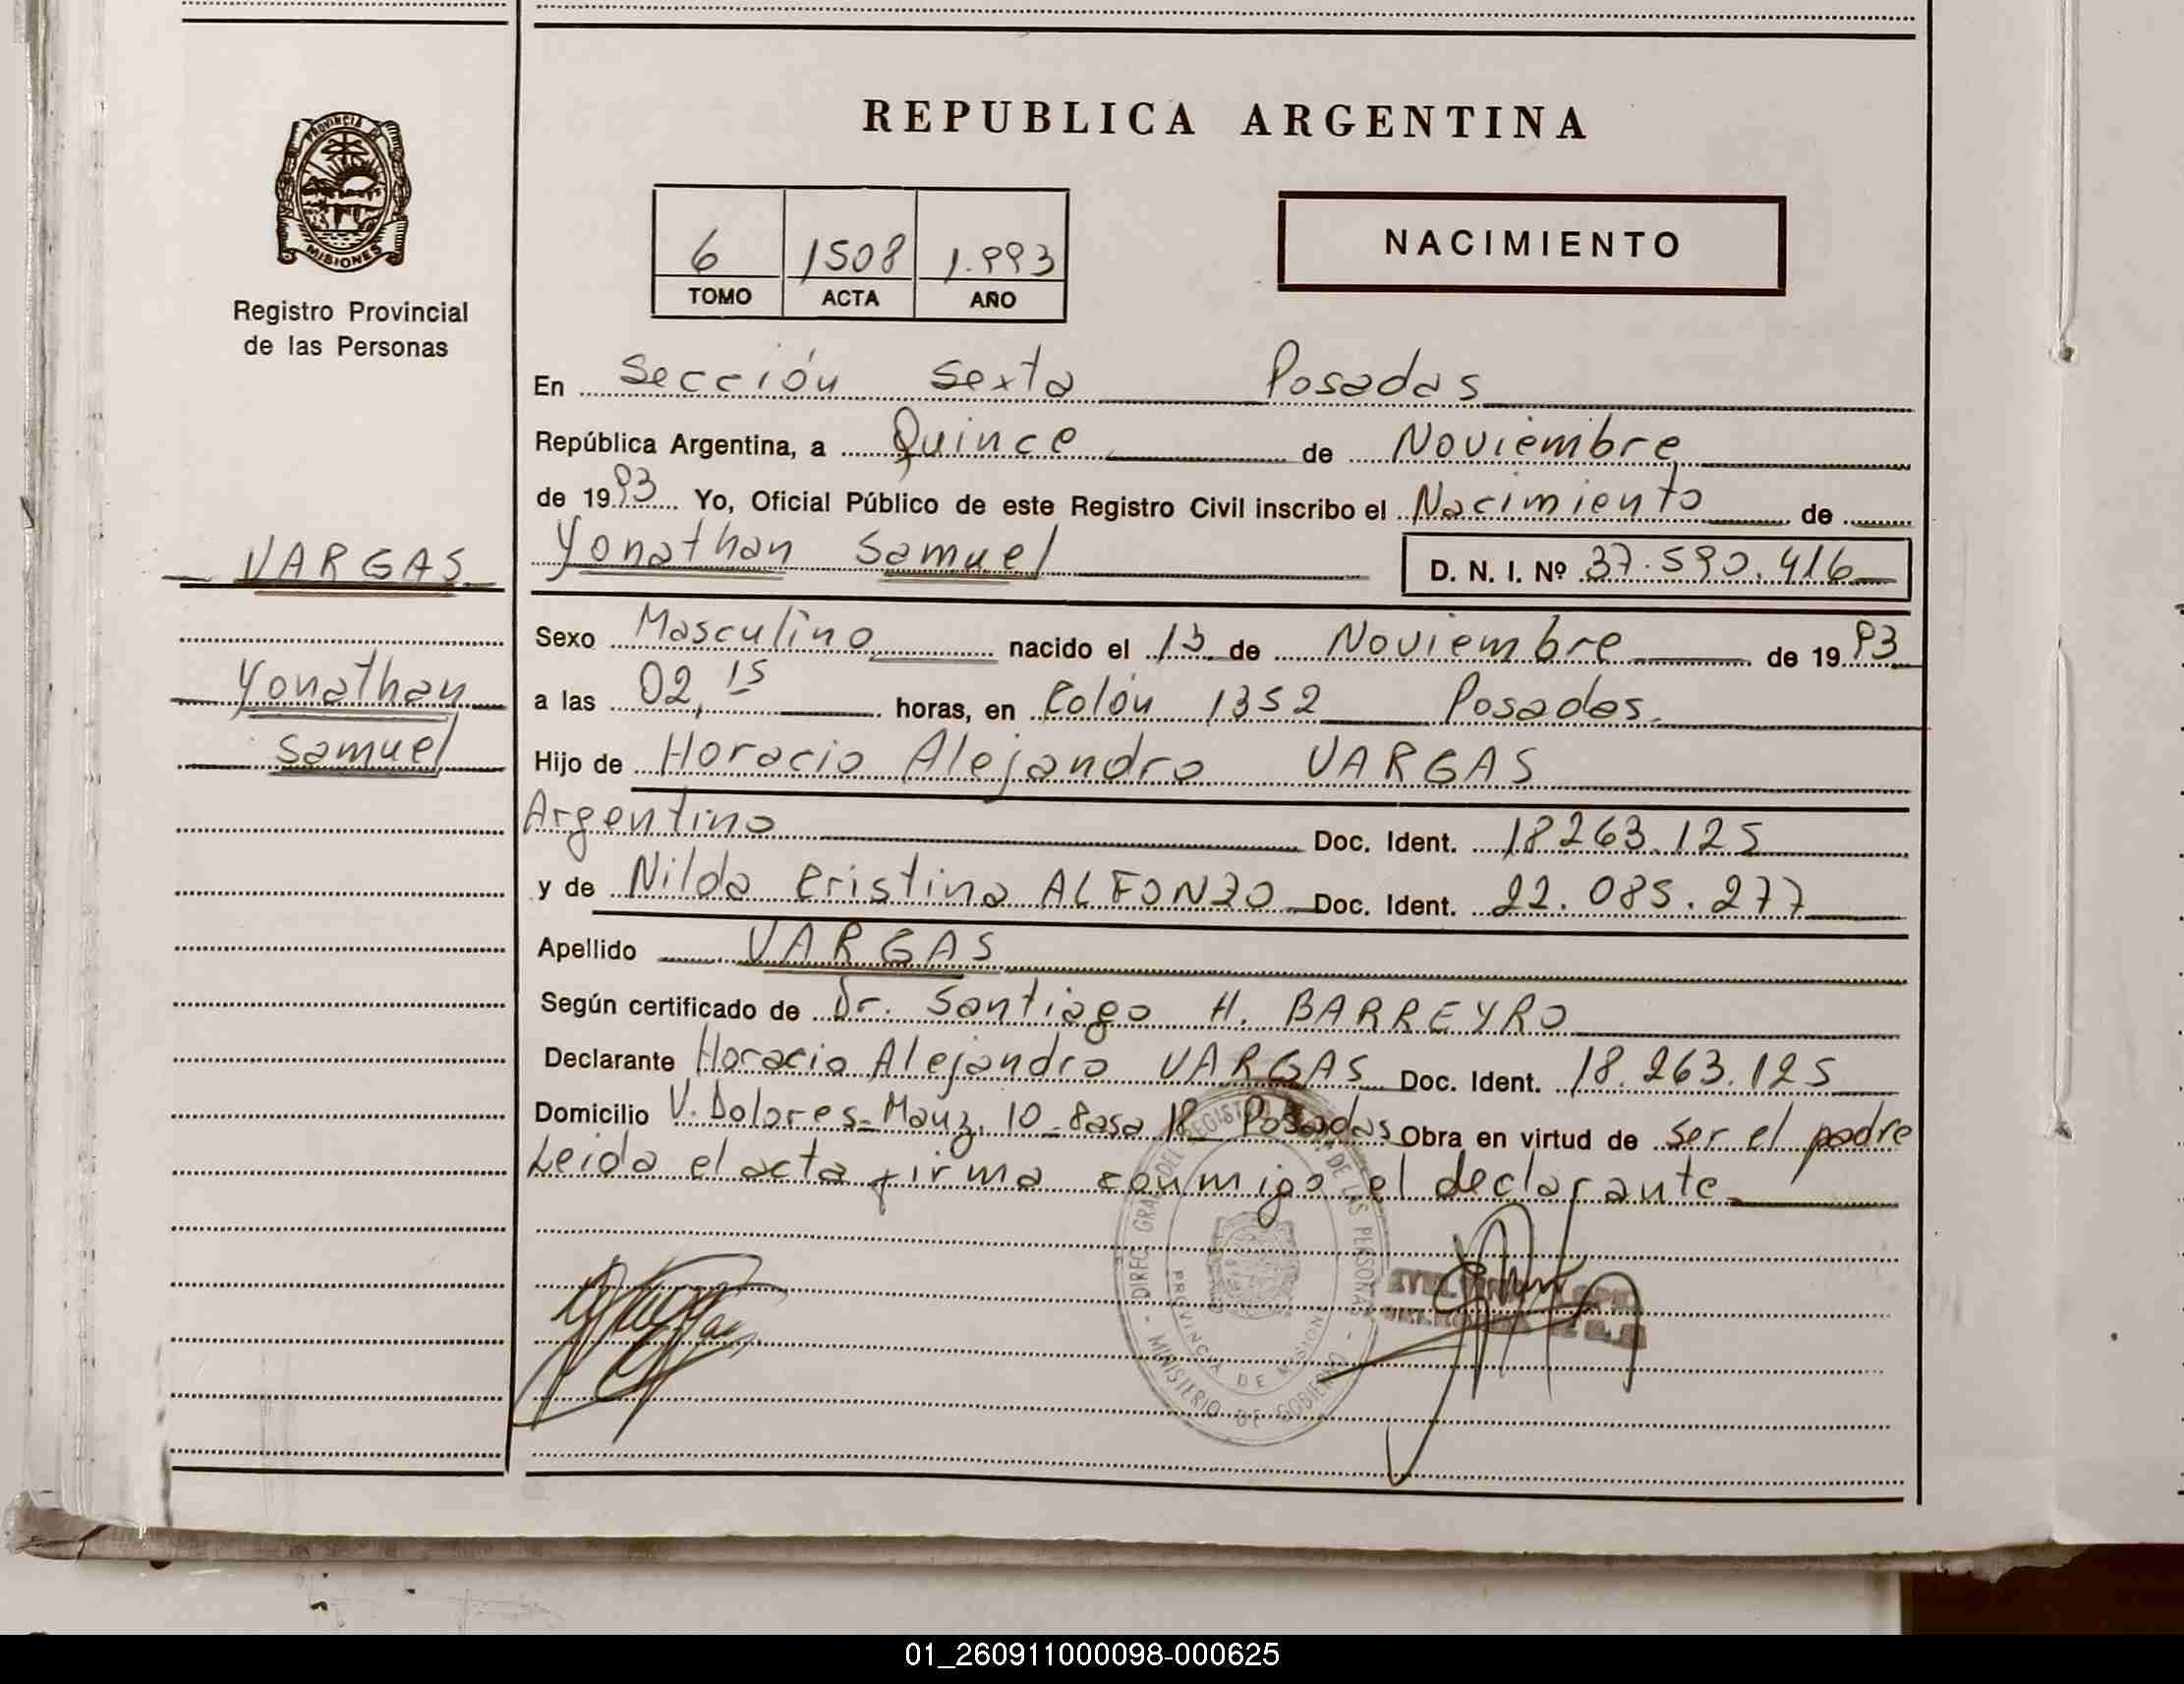 PROVINCIA DE
MISIONES
Registro Provincial
de las Personas
VARGAS
Yonathan
Samuel
REPUBLICA ARGENTINA
6 1508 1.993
TOMO ACTA AÑO
NACIMIENTO
En Sección Sexta Posadas
República Argentina, a Quince de Noviembre
de 1993 Yo, Oficial Público de este Registro Civil inscribo el Nacimiento de
Yonathan Samuel D. N. I. Nº 37.590.416
Sexo Masculino nacido el 13 de Noviembre de 1993
a las 02,15 horas, en Colón 1352 Posadas.
Hijo de Horacio Alejandro VARGAS
Argentino Doc. Ident. 18263.125
y de Nilda Cristina ALFONZO Doc. Ident. 22.085.277
Apellido VARGAS
Según certificado de Dr. Santiago H. BARREYRO
Declarante Horacio Alejandro VARGAS Doc. Ident. 18.263.125
Domicilio V. Dolores-Manz. 10-Casa 18- Posadas Obra en virtud de ser el padre
Leida el acta firma conmigo el declarante
DIREC. GRAL. DEL REGISTRO DE LAS PERSONAS - MINISTERIO DE GOBIERNO -
PROVINCIA DE MISIONES
01_260911000098-000625